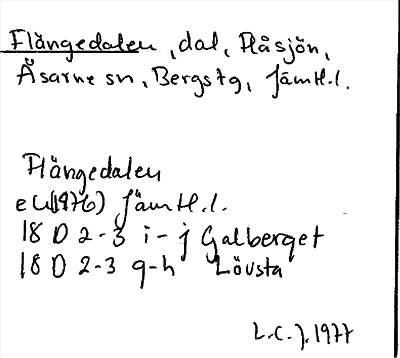 Flängedalen, dal, Flåsjön,
Åsarne sn, Bergs tg, Jämtl.l.
Flängedalen
ek (1976) Jämtl.l.
18 D 2-3 i-j Galberget
18 D 2-3 g-h Lövsta
L.C.J. 1977